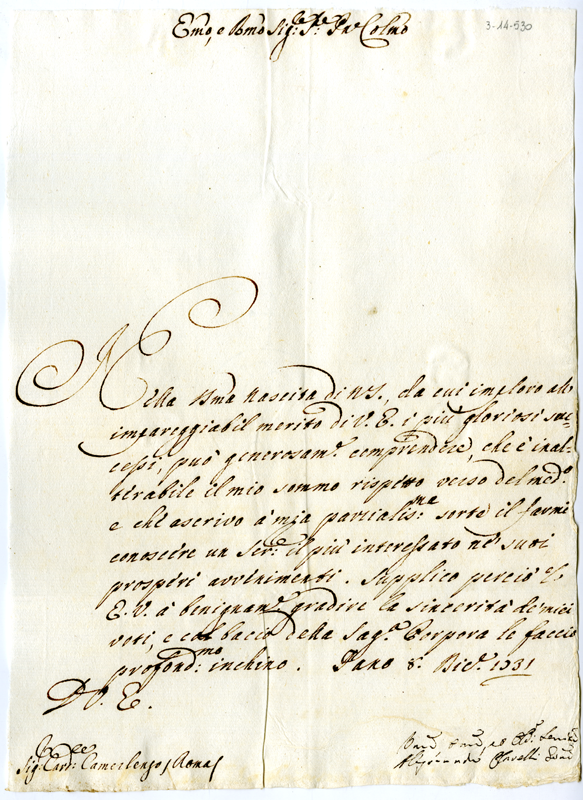 Emo, e Rmo Sig.re P.re Pne Colmo
3-14-530
Nella Sma Nascita di N.S., da cui imploro all'
impareggiabil merito di V. E. i più gloriosi suc=
cessi, può generosam.e comprendere, che è inal-
terabile il mio sommo rispetto verso del med.o
e che ascrivo à mia parzialis.ma sorte il farmi
conoscere un Ser.e il più interessato ne' suoi
prosperi avvenimenti. Supplico perciò l'
E. V. à benignam.e gradire la sincerità de' miei
voti, e col bacio della Sag.a Porpora le faccio
profond.mo inchino. Fano 8. Dic.e 1731
D. V. E.
Sig.re Card.e Camerlengo / Roma /